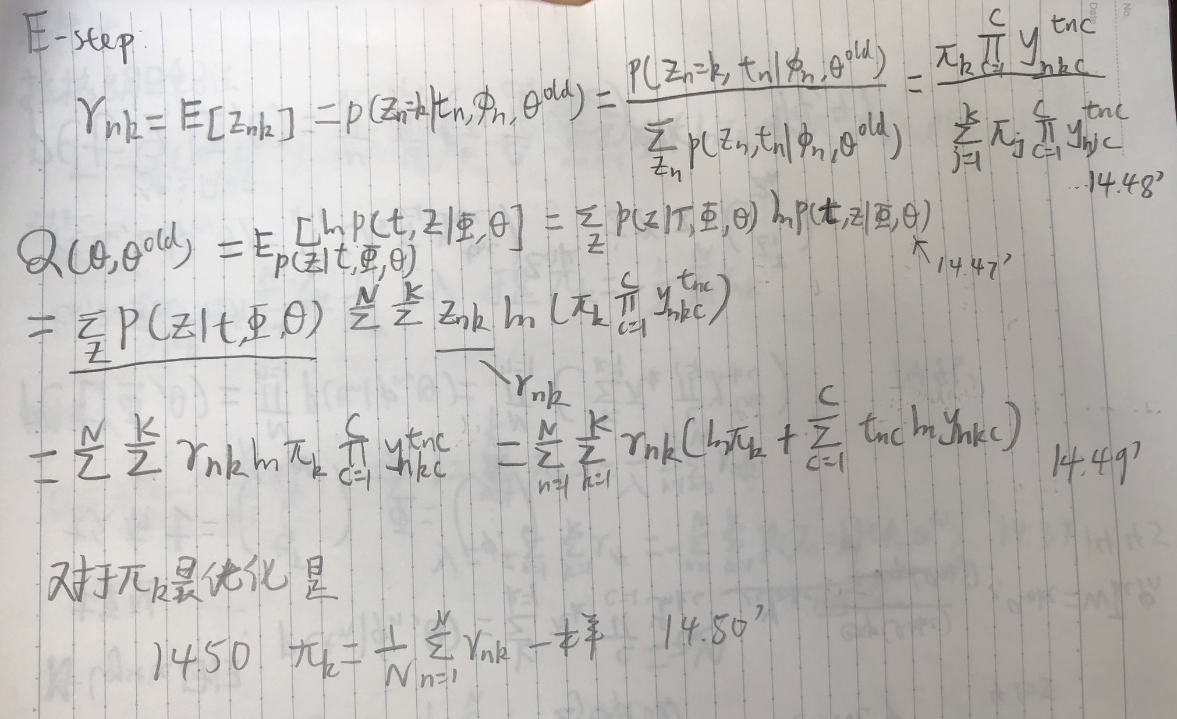 E-step
γnk = E[znk] = p(zn=k|tn,ϕn,θ^old) = p(zn=k, tn|ϕn,θ^old) / Σ_{zn} p(zn,tn|ϕn,θ^old) = πk ∏_{c=1}^{C} y_{nkc}^{tnc} / Σ_{j=1}^{K} πj ∏_{c=1}^{C} y_{njc}^{tnc}
14.48'
Q(θ,θ^old) = E_{p(z|t,Φ,θ)} [ln p(t,z|Φ,θ)] = Σ_z p(z|T,Φ,θ) ln p(t,z|Φ,θ)
14.47'
= Σ_z p(z|t,Φ,θ) Σ^N Σ^K znk ln (πk ∏_{c=1}^{C} y_{nkc}^{tnc})
γnk
= Σ^N Σ^K γnk ln πk ∏_{c=1}^{C} y_{nkc}^{tnc} = Σ_{n=1}^{N} Σ_{k=1}^{K} γnk (ln πk + Σ_{c=1}^{C} tnc ln ynkc) 14.49'
对于πk最优化 是
14.50 πk = 1/N Σ_{n=1}^{N} γnk 一样 14.50'